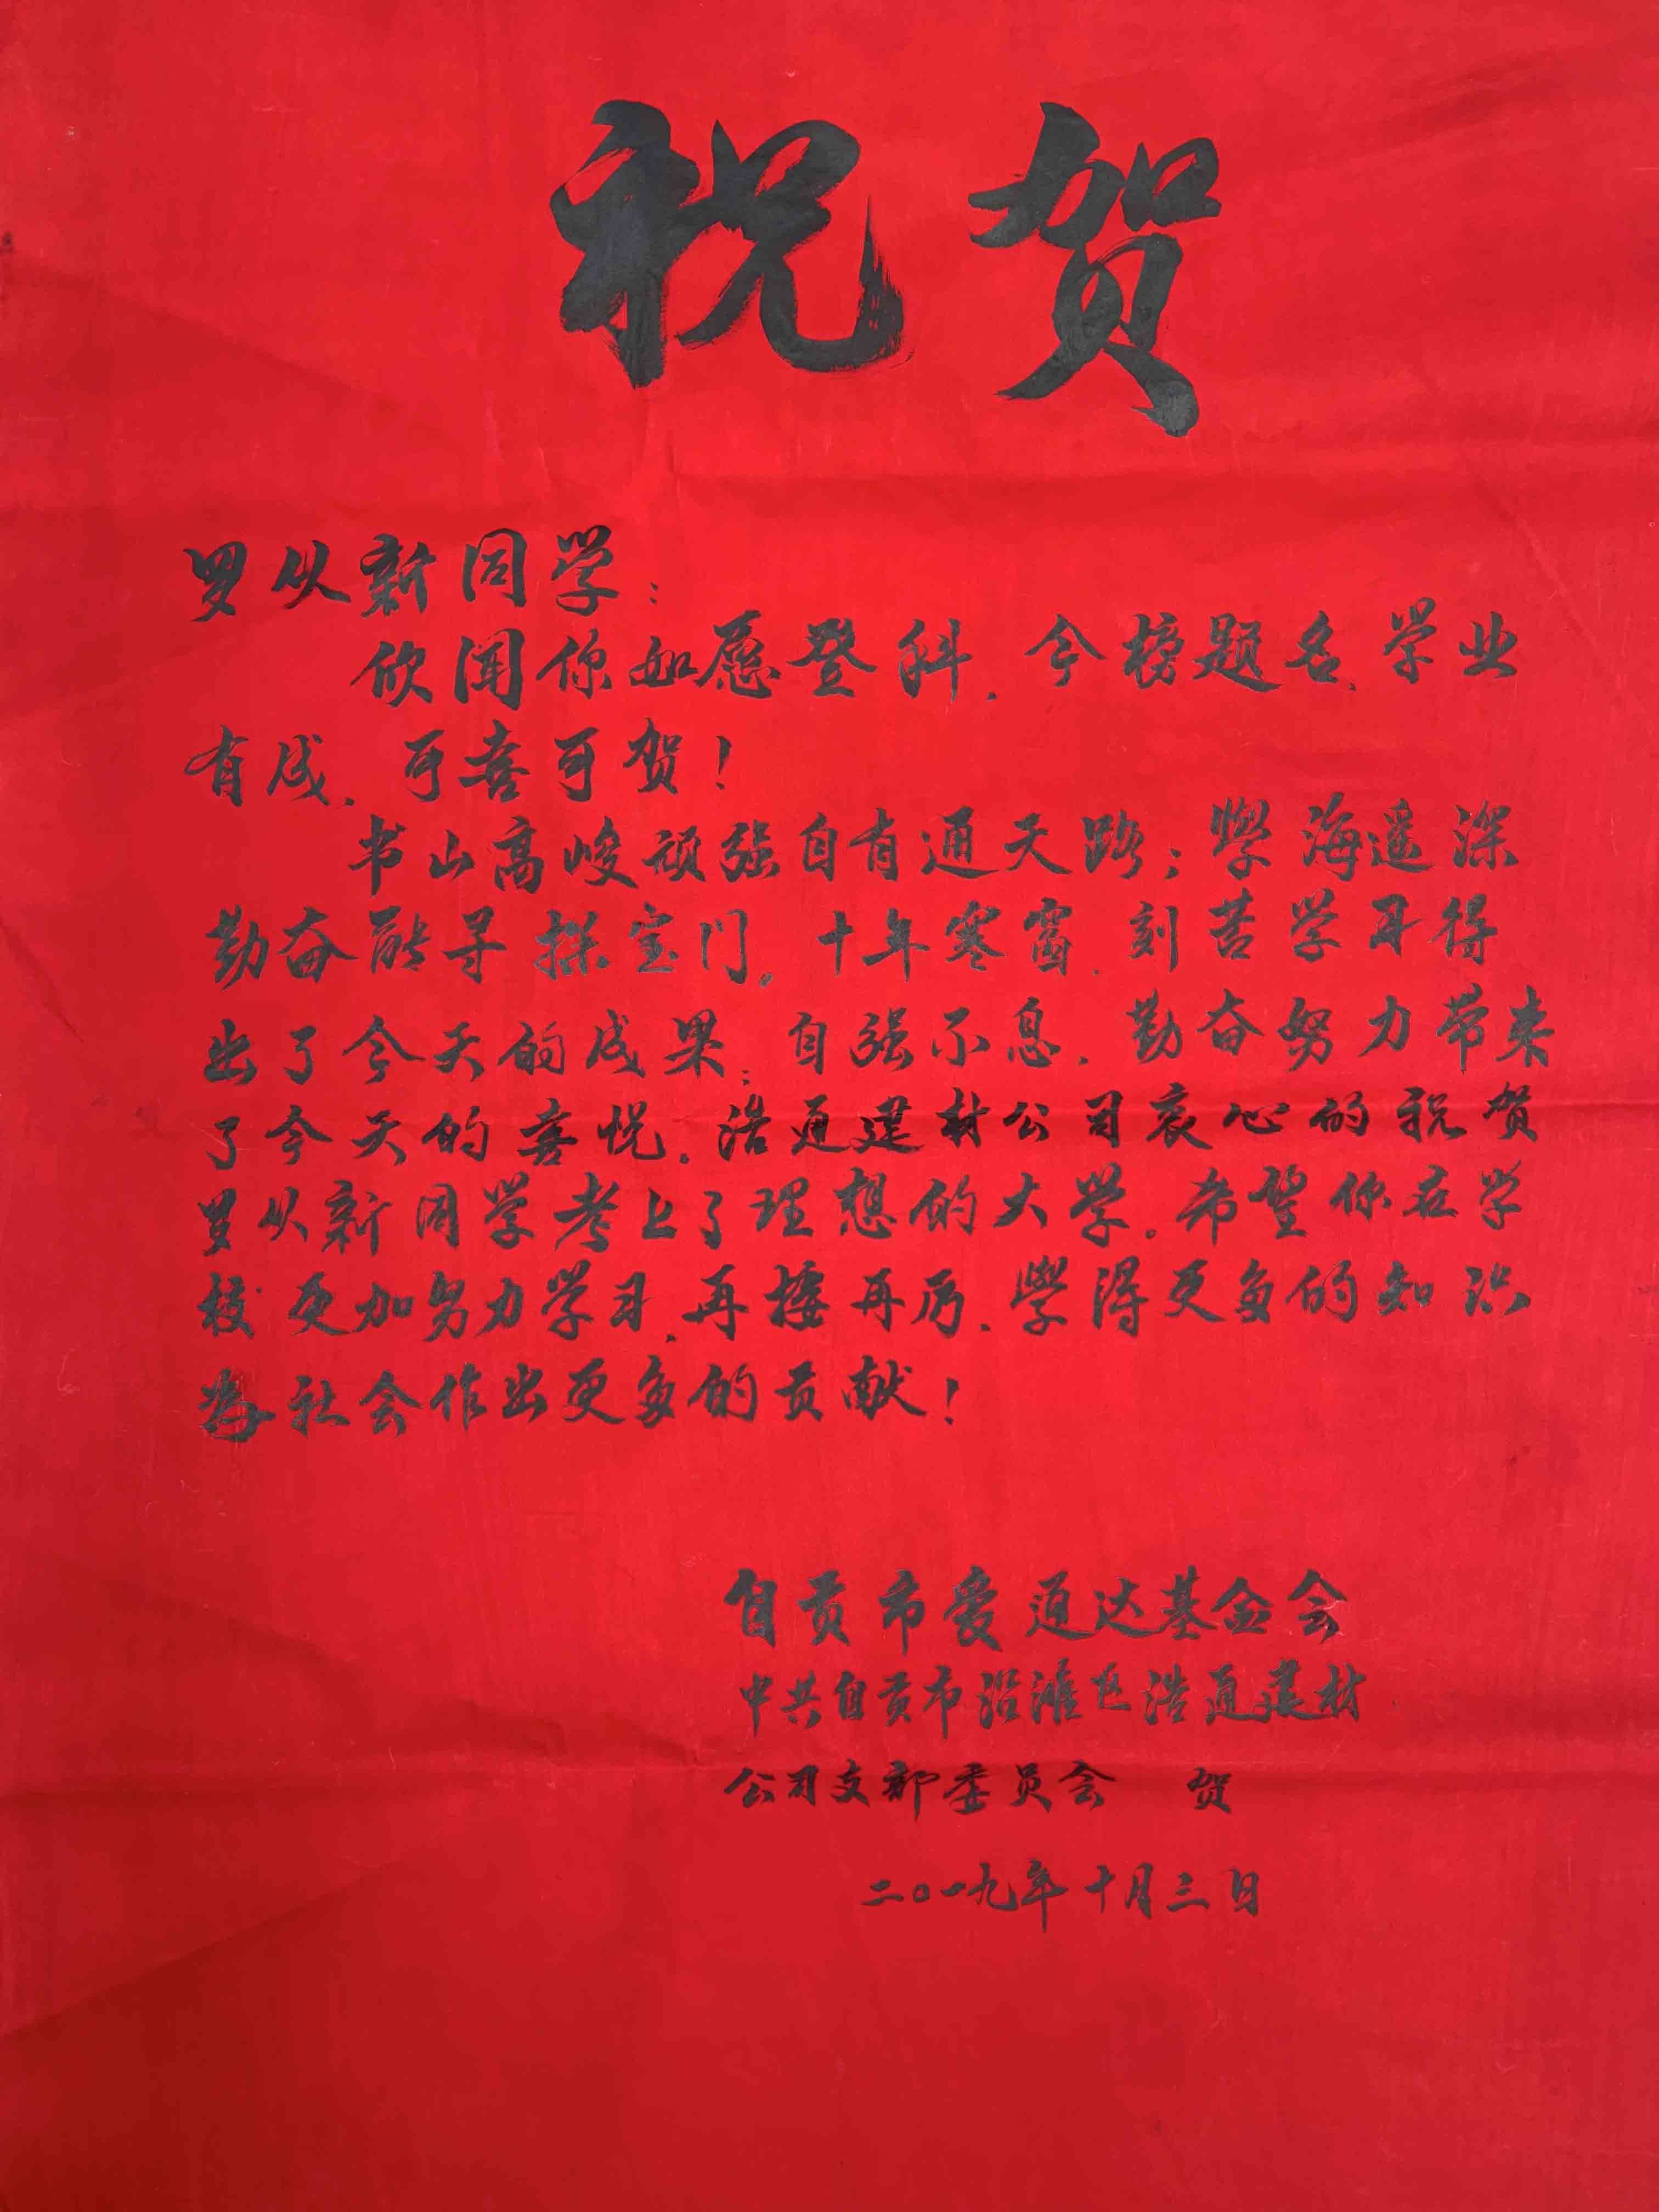 祝贺
罗从新同学：
欣闻你如愿登科，今榜题名，学业
有成，可喜可贺！
书山高峻顽强自有通天路；學海遥深
勤奋能寻探宝门。十年寒窗，刻苦学习得
出了今天的成果；自强不息，勤奋努力带来
了今天的喜悦。浩通建材公司衷心的祝贺
罗从新同学考上了理想的大学。希望你在学
校更加努力学习，再接再厉，學得更多的知识
为社会作出更多的贡献！
自贡市爱通达基金会
中共自贡市沿滩区浩通建材
公司支部委员会 贺
二〇一九年十月三日